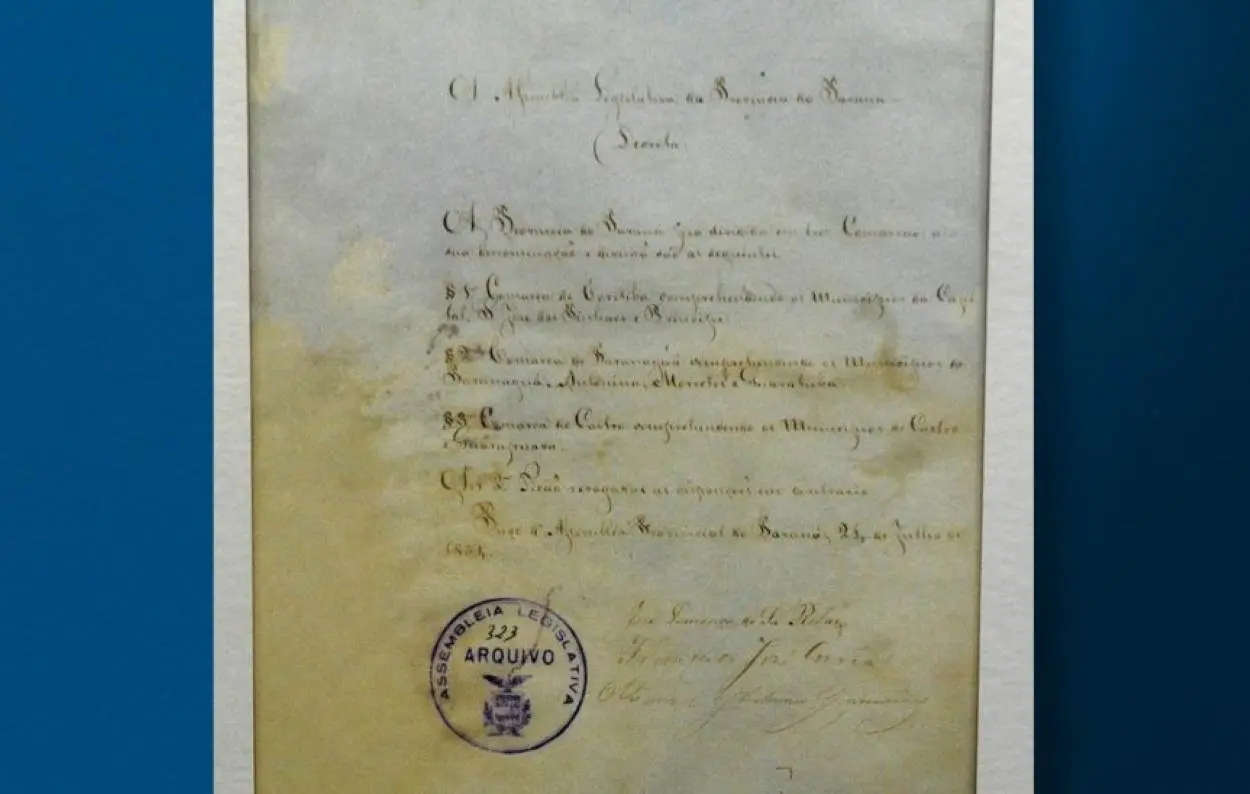 A Assembléa Legislativa da Provincia do Paraná
Decreta:
A Provincia do Paraná fica dividida em tres Comarcas, a
sua denominação e divisão são as seguintes.
§ 1º Comarca de Coritiba comprehendendo os Municipios da Capi
tal, S. José dos Pinhaes e Principe.
§ 2º Comarca de Paranaguá comprehendendo os Municipios de
Paranaguá, Antonina, Morretes e Guaratuba.
§ 3º Comarca de Castro comprehendendo os Municipios de Castro
e Guarapuava.
Art 2º Ficão revogadas as disposições em contrario
Paço d'Assembléa Provincial do Paraná, 24 de Julho de
1854.
ASSEMBLEIA LEGISLATIVA
323
ARQUIVO
Francisco José Correia